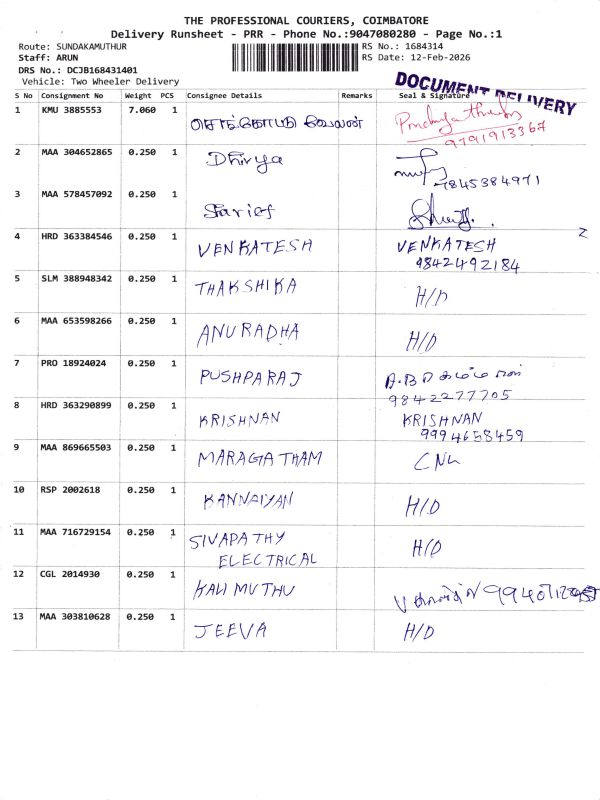 THE PROFESSIONAL COURIERS, COIMBATORE
Delivery Runsheet - PRR - Phone No.:9047080280 - Page No.:1
Route: SUNDAKAMUTHUR RS No.: 1684314
Staff: ARUN RS Date: 12-Feb-2026
DRS No.: DCJB168431401
Vehicle: Two Wheeler Delivery
DOCUMENT DELIVERY
S No Consignment No Weight PCS Consignee Details Remarks Seal & Signature
1 KMU 3885553 7.060 1
9791913367
2 MAA 304652865 0.250 1 Dhivya
7845384971
3 MAA 578457092 0.250 1 Sarief
4 HRD 363384546 0.250 1 VENKATESH VENKATESH
9842492184
5 SLM 388948342 0.250 1 THAKSHIKA H/D
6 MAA 653598266 0.250 1 ANURADHA H/D
7 PRO 18924024 0.250 1 PUSHPARAJ
9842277705
8 HRD 363290899 0.250 1 KRISHNAN KRISHNAN
9994658459
9 MAA 869665503 0.250 1 MARAGATHAM
10 RSP 2002618 0.250 1 KANNAIYAN H/D
11 MAA 716729154 0.250 1 SIVAPATHY H/D
ELECTRICAL
12 CGL 2014930 0.250 1 KALI MUTHU
13 MAA 303810628 0.250 1 JEEVA H/D